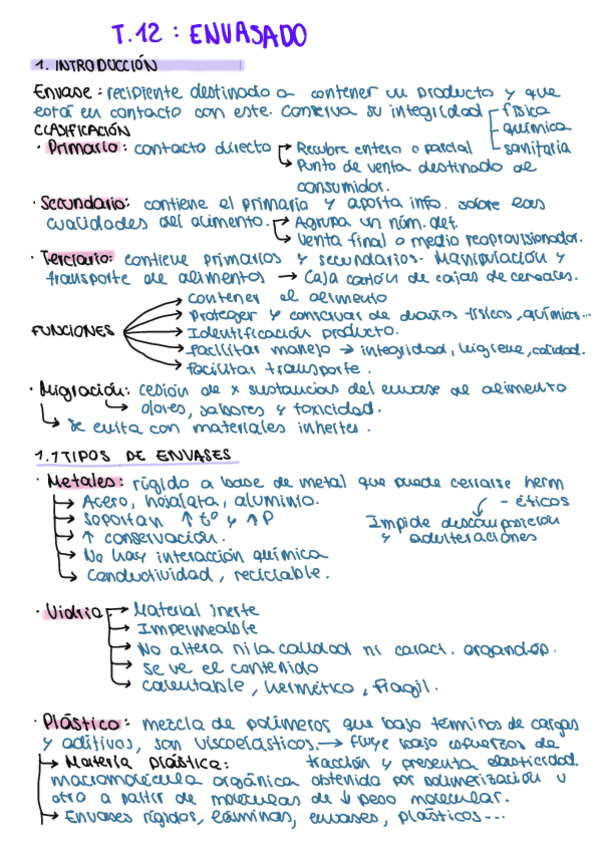 T.12 : ENVASADO
1. INTRODUCCIÓN
Envase : recipiente destinado a contener un producto y que
está en contacto con este. Conserva su integridad física
química
sanitaria
CLASIFICACIÓN
· Primario: contacto directo → Recubre entero o parcial
→ Punto de venta destinado al
consumidor.
· Secundario: contiene el primario y aporta info. sobre las
cualidades del alimento. → Agrupa un núm. det.
→ Venta final o medio reaprovisionador.
· Terciario: contiene primarios y secundarios. Manipulación y
transporte de alimentos → Caja cartón de cajas de cereales.
FUNCIONES
→ Contener el alimento
→ Proteger y conservar de daños físicos, químicos...
→ Identificación producto.
→ Facilitar manejo → integridad, higiene, calidad.
→ Facilitar transporte.
· Migración: cesión de x sustancias del envase al alimento
→ olores, sabores y toxicidad.
→ Se evita con materiales inhertes.
1.1 TIPOS DE ENVASES
· Metales: rígido a base de metal que puede cerrarse herm
- éticos
→ Acero, hojalata, aluminio.
→ Soportan ↑ tº y ↑ P
Impide descomposición
y adulteraciones
→ ↑ conservación.
→ No hay interacción química
→ Conductividad, reciclable.
· Vidrio → Material inerte
→ Impermeable
→ No altera ni la calidad ni caract. organolép.
→ Se ve el contenido
→ Calentable, hermético, frágil.
· Plástico: mezcla de polímeros que bajo términos de cargas
y aditivos, son viscoelásticos. → fluye bajo esfuerzos de
tracción y presenta elasticidad.
→ Materia plástica:
macromolécula orgánica obtenida por polimerización u
otro a partir de moléculas de ↓ peso molecular.
→ Envases rígidos, láminas, envases, plásticos...